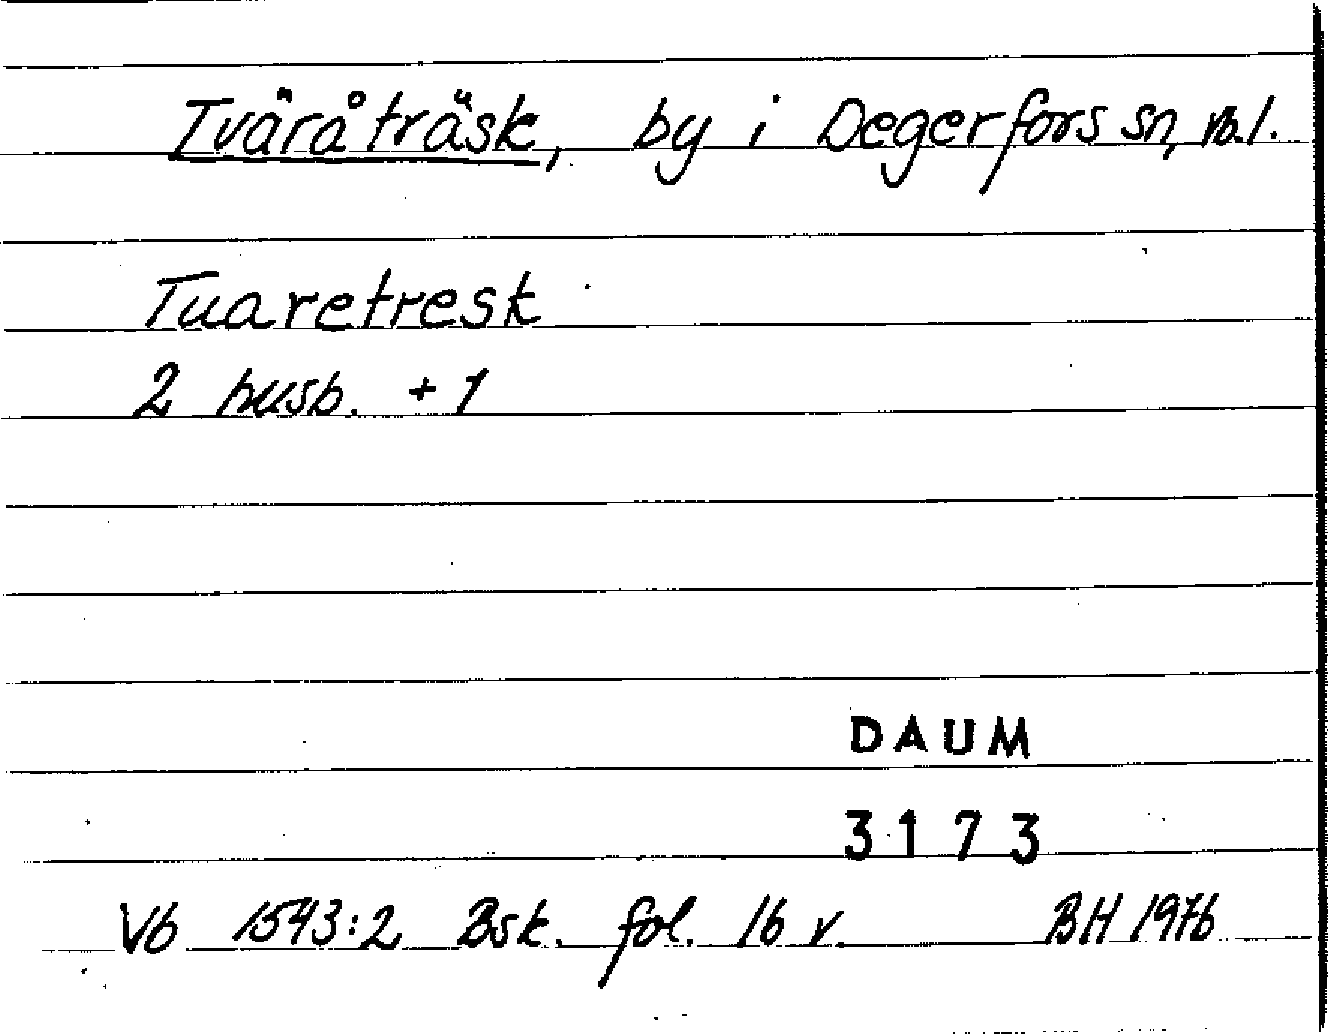 Tväråträsk, by i Degerfors sn, vb.l.
Tuaretresk
2 husb. + 1
DAUM
3173
Vb 1543:2 Bsk. fol. 16 v. BH 1976